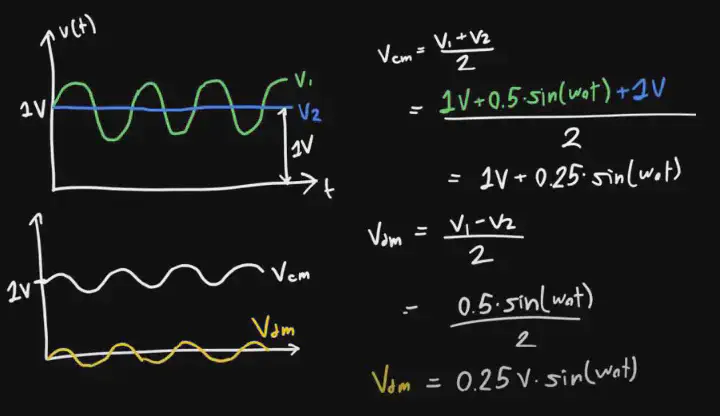 v(t)
V₁
1V
V₂
1V
t
1V
Vcm
Vdm
Vcm = V₁+V₂
2
= 1V+0.5·sin(w₀t)+1V
2
= 1V+0.25·sin(w₀t)
Vdm = V₁-V₂
2
= 0.5·sin(w₀t)
2
Vdm = 0.25V·sin(w₀t)